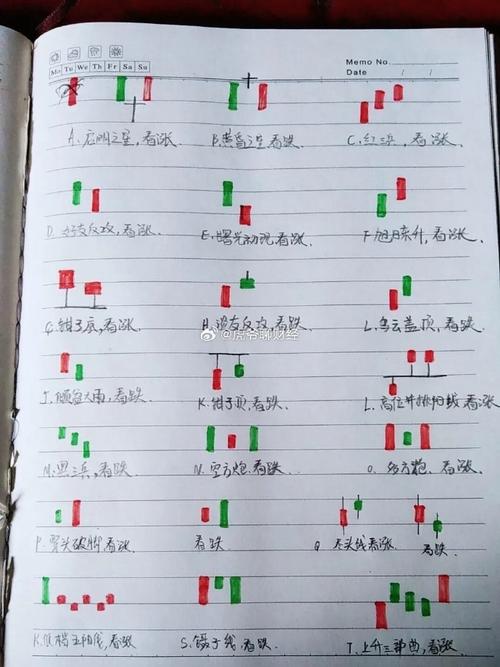 Memo No.
Mo Tu We Th Fr Sa Su
Date / /
A. 启明之星,看涨.
B. 黄昏之星 看跌.
C. 红三兵, 看涨.
D. 好友反攻,看涨.
E. 曙光初现,看涨.
F. 旭日东升,看涨.
G. 钳子底,看涨.
H. 淡友反攻,看跌.
L. 乌云盖顶,看跌.
@虎爷聊财经
J. 倾盆大雨,看跌.
K. 钳子顶,看跌.
L. 高位并排阳线 看涨
M. 黑三兵,看跌
N. 空方炮.看跌.
O. 多方炮. 看涨.
P. 穿头破脚,看涨
看跌.
Q. 尽头线 看涨.
看跌.
R. 低档五阳线,看涨
S. 镊子线,看跌.
T. 上升三部曲,看涨.